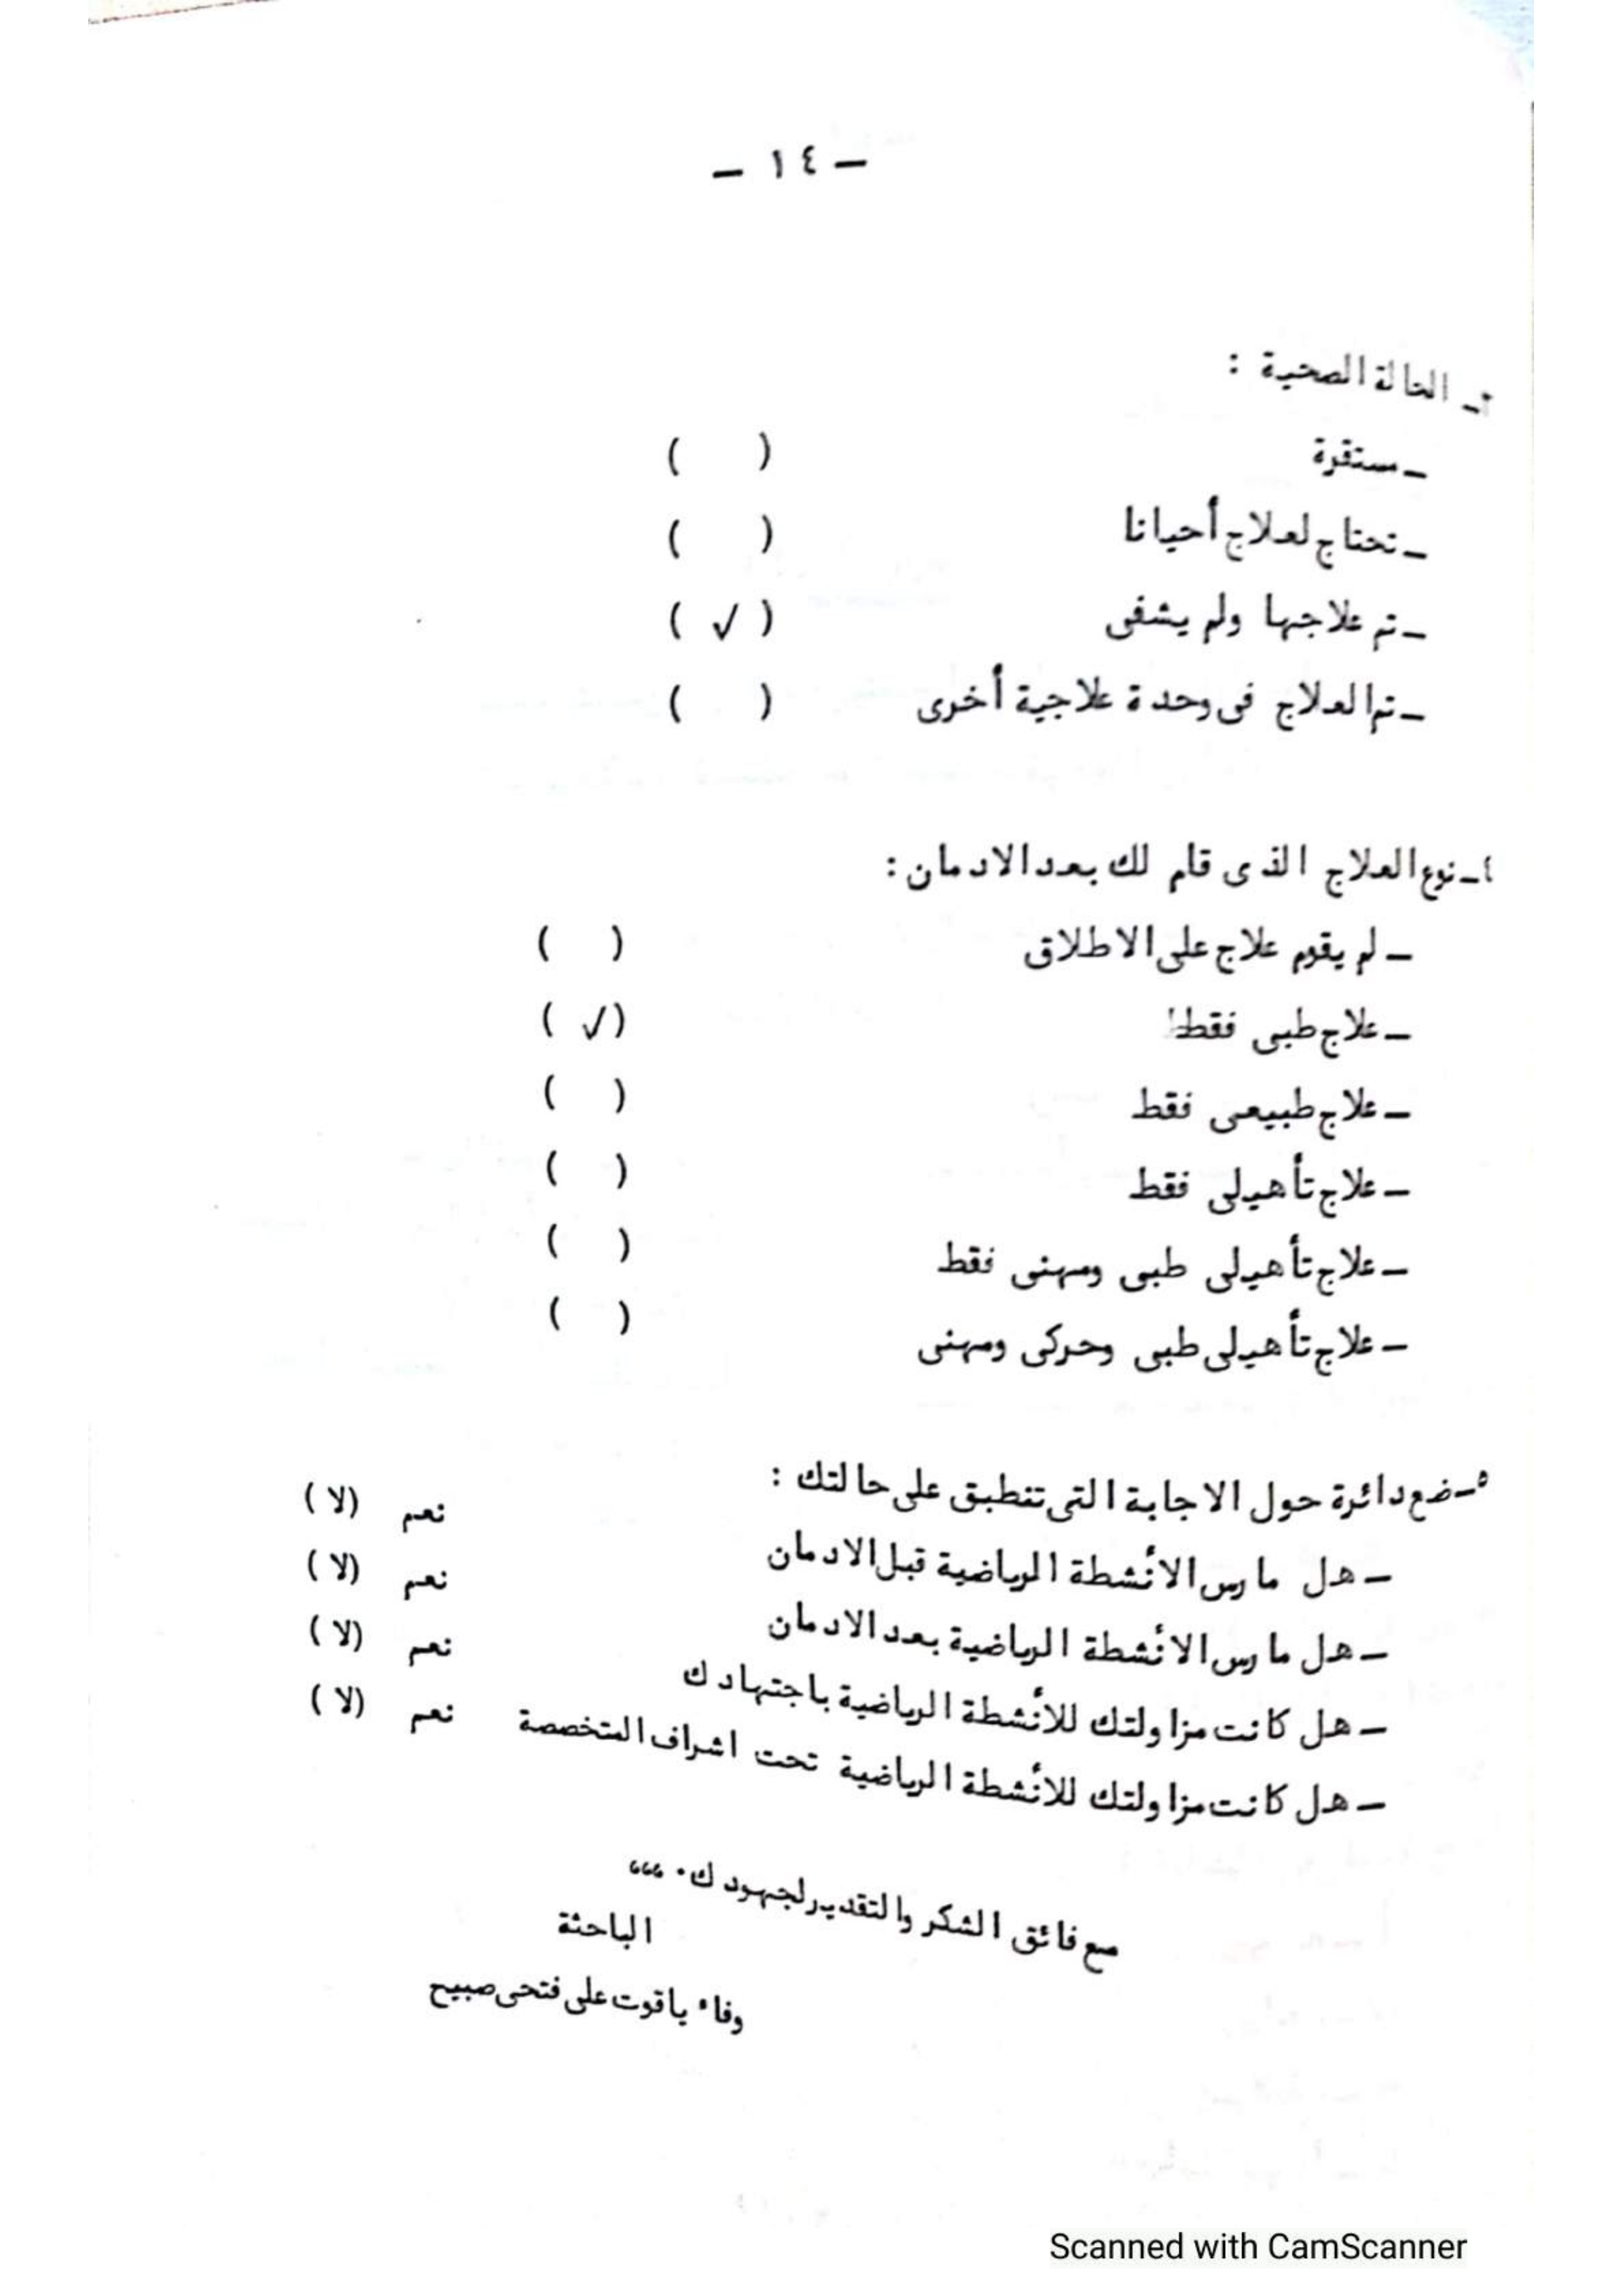 – ١٤ –
٣ـ الحالة الصحية :
ـ مستقرة ( )
ـ تحتاج لعلاج أحيانا ( )
ـ تم علاجها ولم يشفى ( √ )
ـ تم العلاج فى وحدة علاجية أخرى ( )
٤ـ نوع العلاج الذى قام لك بعد الادمان :
ـ لم يقوم علاج على الاطلاق ( )
ـ علاج طبى فقط ( √ )
ـ علاج طبيعى فقط ( )
ـ علاج تأهيلى فقط ( )
ـ علاج تأهيلى طبى ومهنى فقط ( )
ـ علاج تأهيلى طبى وحركى ومهنى ( )
٥ـ ضع دائرة حول الاجابة التى تنطبق على حالتك :
ـ هل مارس الأنشطة الرياضية قبل الادمان نعم (لا)
ـ هل مارس الأنشطة الرياضية بعد الادمان نعم (لا)
ـ هل كانت مزاولتك للأنشطة الرياضية باجتهادك نعم (لا)
ـ هل كانت مزاولتك للأنشطة الرياضية تحت اشراف المتخصصة نعم (لا)
مع فائق الشكر والتقدير لجهودك. ،،،
الباحثة
وفاء ياقوت على فتحى صبيح
Scanned with CamScanner